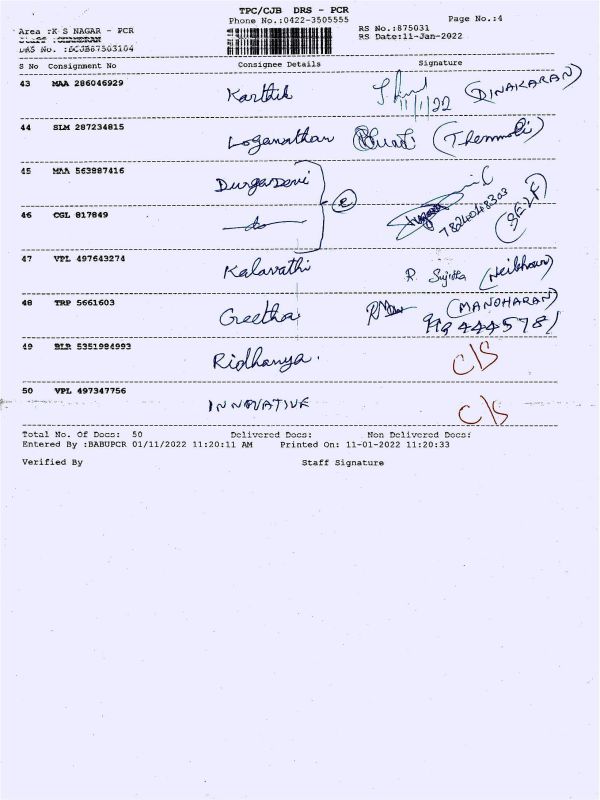 TPC/CJB DRS - PCR
Phone No.:0422-3505555 Page No.:4
Area :K S NAGAR - PCR RS No.:875031
RS Date:11-Jan-2022
DRS No. :DCJB67503104
S No Consignment No Consignee Details Signature
43 MAA 286046929 Karthik 11/1/22 (DINAKARAN)
44 SLM 287234815 Loganathan (Thenmoli)
45 MAA 563887416 Durga Devi
46 CGL 817849 do 7824048303 (SELF)
47 VPL 497643274 Kalavathi R. Sujitha
48 TRP 5661603 Geetha (MANOHARAN)
49 BLR 5351984993 Ridhanya. C/S
50 VPL 497347756 INNOVATIVE C/S
Total No. Of Docs: 50 Delivered Docs: Non Delivered Docs:
Entered By :BABUPCR 01/11/2022 11:20:11 AM Printed On: 11-01-2022 11:20:33
Verified By Staff Signature